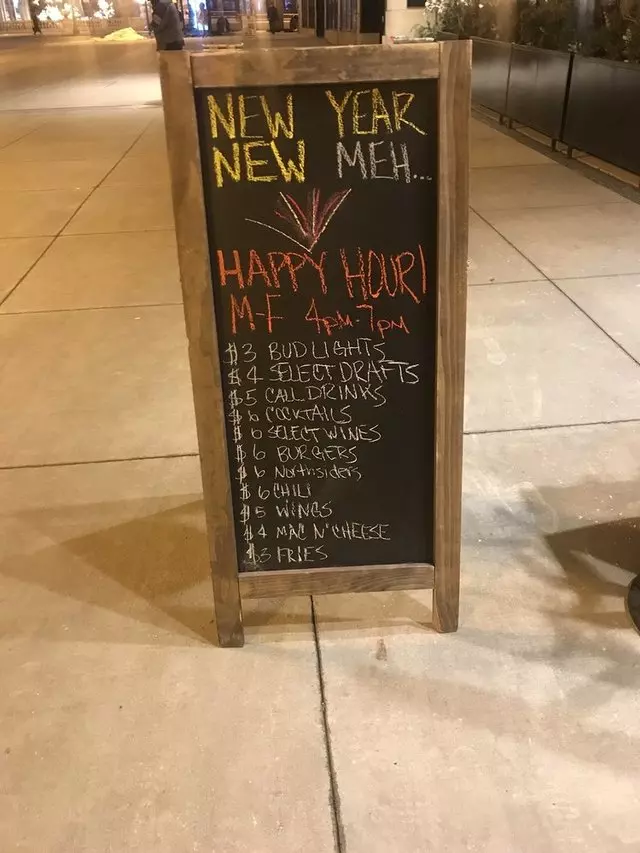 NEW YEAR
NEW MEH...
HAPPY HOUR!
M-F 4PM-7PM
$3 BUD LIGHTS
$4 SELECT DRAFTS
$5 CALL DRINKS
$6 COCKTAILS
$6 SELECT WINES
$6 BURGERS
$6 Northsiders
$6 CHILI
$5 WINGS
$4 MAC N' CHEESE
$3 FRIES